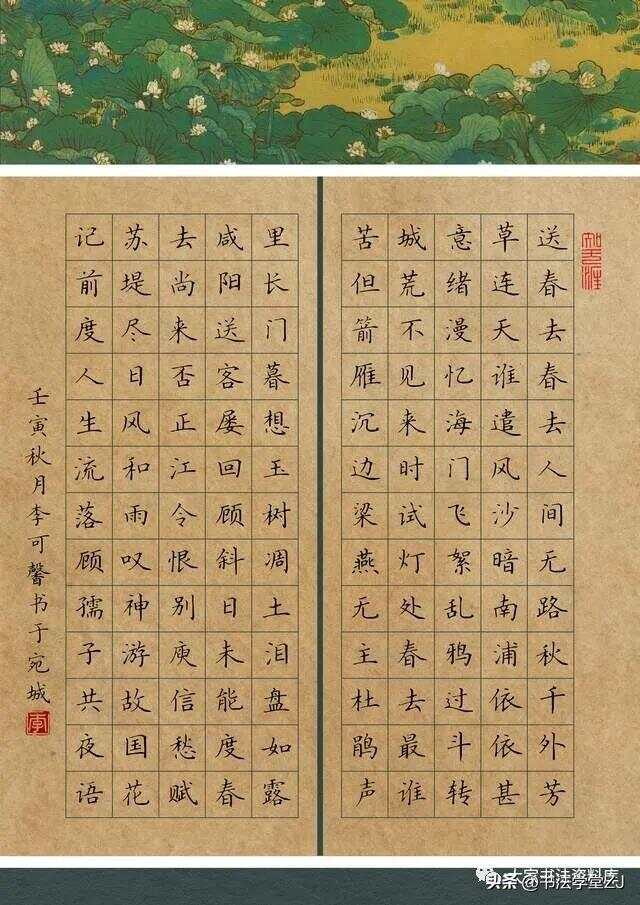 送春去春去人间无路秋千外芳
草连天谁遣风沙暗南浦依依甚
意绪漫忆海门飞絮乱鸦过斗转
城荒不见来时试灯处春去最谁
苦但箭雁沉边梁燕无主杜鹃声
里长门暮想玉树凋土泪盘如露
咸阳送客屡回顾斜日未能度春
去尚来否正江令恨别庾信愁赋
苏堤尽日风和雨叹神游故国花
记前度人生流落顾孺子共夜语
壬寅秋月李可馨书于宛城
李
大家书法资料库
头条 @书法学堂ZJ